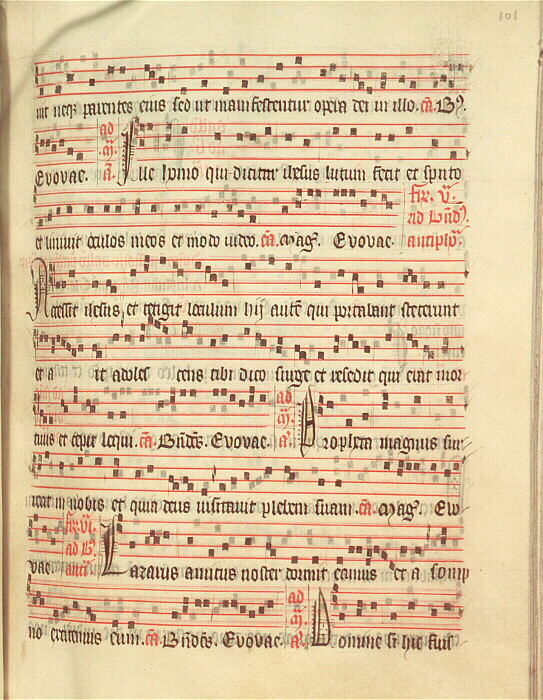 101
nit neqz parentes eius sed ut manifestentur opera dei in illo. cā. Bꝰ.
Evovae. ad m̄. ā. Ille homo qui dicitur ihesus lutum fecit et sputo
et linivit oculos meos et modo video. cā. Mag̃. Evovae. fīx. v̄. ad bn̄d̄. antiphō.
Accessit ihesus et tetigit loculum hij autē qui portabant steterunt
et a it adoles cens tibi dico surge et resedit qui erat mor
tuus et cepit loqui. cā. Bn̄dc̄s. Evovae. ad m̄. ā. Propheta magnus sur
rexit in nobis et quia deus visitavit plebem suam. cā. Mag̃. Evo
vae. fr̄. vi. ad B. antī. Lazarus amicus noster dormit eamus et a somp
no excitemus eum. cā. Bn̄dc̄s. Evovae. ad m̄. ā. Domine si hic fuis